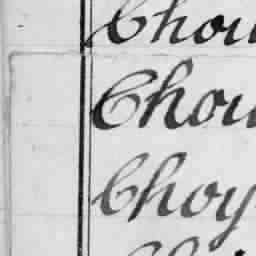 Chou
Chou
Choy